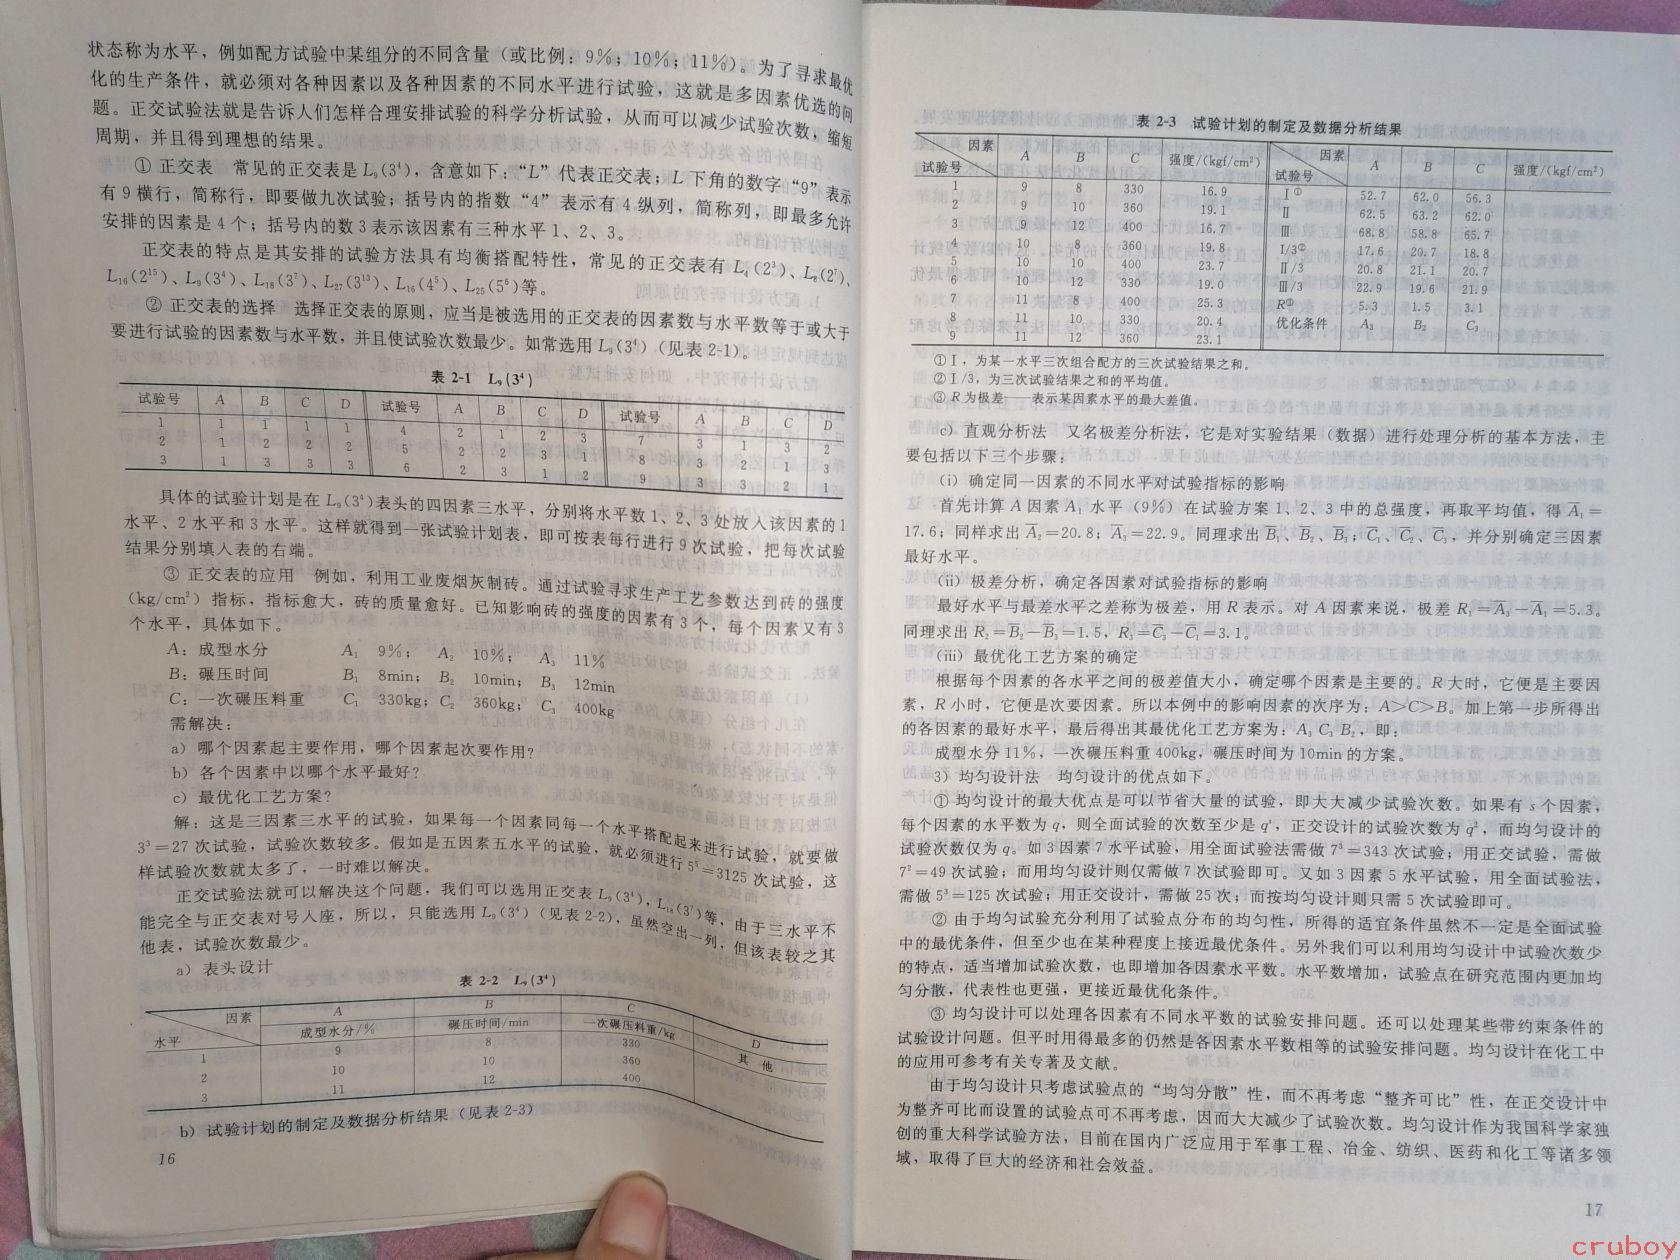 状态称为水平，例如配方试验中某组分的不同含量（或比例：9%；10%；11%）。为了寻求最优
化的生产条件，就必须对各种因素以及各种因素的不同水平进行试验，这就是多因素优选的问
题。正交试验法就是告诉人们怎样合理安排试验的科学分析试验，从而可以减少试验次数，缩短
周期，并且得到理想的结果。
① 正交表 常见的正交表是 L₉(3⁴)，含意如下：“L”代表正交表；L 下角的数字“9”表示
有 9 横行，简称行，即要做九次试验；括号内的指数“4”表示有 4 纵列，简称列，即最多允许
安排的因素是 4 个；括号内的数 3 表示该因素有三种水平 1、2、3。
正交表的特点是其安排的试验方法具有均衡搭配特性，常见的正交表有 L₄(2³)、L₈(2⁷)、
L₁₆(2¹⁵)、L₉(3⁴)、L₁₈(3⁷)、L₂₇(3¹³)、L₁₆(4⁵)、L₂₅(5⁶)等。
② 正交表的选择 选择正交表的原则，应当是被选用的正交表的因素数与水平数等于或大于
要进行试验的因素数与水平数，并且使试验次数最少。如常选用 L₉(3⁴)（见表 2-1）。
表 2-1 L₉(3⁴)
试验号 A B C D 试验号 A B C D 试验号 A B C D
1 1 1 1 1 4 2 1 2 3 7 3 1 3 2
2 1 2 2 2 5 2 2 3 1 8 3 2 1 3
3 1 3 3 3 6 2 3 1 2 9 3 3 2 1
具体的试验计划是在 L₉(3⁴)表头的四因素三水平，分别将水平数 1、2、3 处放入该因素的 1
水平、2 水平和 3 水平。这样就得到一张试验计划表，即可按表每行进行 9 次试验，把每次试验
结果分别填入表的右端。
③ 正交表的应用 例如，利用工业废烟灰制砖。通过试验寻求生产工艺参数达到砖的强度
(kg/cm²) 指标，指标愈大，砖的质量愈好。已知影响砖的强度的因素有 3 个，每个因素又有 3
个水平，具体如下。
A：成型水分 A₁ 9%； A₂ 10%； A₃ 11%
B：碾压时间 B₁ 8min； B₂ 10min； B₃ 12min
C：一次碾压料重 C₁ 330kg； C₂ 360kg； C₃ 400kg
需解决：
a）哪个因素起主要作用，哪个因素起次要作用？
b）各个因素中以哪个水平最好？
c）最优化工艺方案？
解：这是三因素三水平的试验，如果每一个因素同每一个水平搭配起来进行试验，就要做
3³＝27 次试验，试验次数较多。假如是五因素五水平的试验，就必须进行 5⁵＝3125 次试验，这
样试验次数就太多了，一时难以解决。
正交试验法就可以解决这个问题，我们可以选用正交表 L₉(3⁴)，L₁₈(3⁷)等，由于三水平不
能完全与正交表对号入座，所以，只能选用 L₉(3⁴)（见表 2-2），虽然空出一列，但该表较之其
他表，试验次数最少。
a）表头设计
表 2-2 L₉(3⁴)
因素 A B C D
水平 成型水分/% 碾压时间/min 一次碾压料重/kg 其 他
1 9 8 330
2 10 10 360
3 11 12 400
b）试验计划的制定及数据分析结果（见表 2-3）
16
表 2-3 试验计划的制定及数据分析结果
因素 A B C 强度/(kgf/cm²) 因素 A B C 强度/(kgf/cm²)
试验号 试验号
1 9 8 330 16.9 Ⅰ① 52.7 62.0 56.3
2 9 10 360 19.1 Ⅱ 62.5 63.2 62.0
3 9 12 400 16.7 Ⅲ 68.8 58.8 65.7
4 10 8 360 19.8 Ⅰ/3② 17.6 20.7 18.8
5 10 10 400 23.7 Ⅱ/3 20.8 21.1 20.7
6 10 12 330 19.0 Ⅲ/3 22.9 19.6 21.9
7 11 8 400 25.3 R③ 5.3 1.5 3.1
8 11 10 330 20.4 优化条件 A₃ B₂ C₃
9 11 12 360 23.1
①Ⅰ，为某一水平三次组合配方的三次试验结果之和。
②Ⅰ/3，为三次试验结果之和的平均值。
③ R 为极差——表示某因素水平的最大差值。
c）直观分析法 又名极差分析法，它是对实验结果（数据）进行处理分析的基本方法，主
要包括以下三个步骤：
(ⅰ) 确定同一因素的不同水平对试验指标的影响
首先计算 A 因素 A₁ 水平（9%）在试验方案 1、2、3 中的总强度，再取平均值，得 A̅₁＝
17.6；同样求出 A̅₂＝20.8；A̅₃＝22.9。同理求出 B̅₁、B̅₂、B̅₃；C̅₁、C̅₂、C̅₃，并分别确定三因素
最好水平。
(ⅱ) 极差分析，确定各因素对试验指标的影响
最好水平与最差水平之差称为极差，用 R 表示。对 A 因素来说，极差 R₁＝A̅₃－A̅₁＝5.3。
同理求出 R₂＝B̅₂－B̅₃＝1.5，R₃＝C̅₃－C̅₁＝3.1。
(ⅲ) 最优化工艺方案的确定
根据每个因素的各水平之间的极差值大小，确定哪个因素是主要的。R 大时，它便是主要因
素，R 小时，它便是次要因素。所以本例中的影响因素的次序为：A＞C＞B。加上第一步所得出
的各因素的最好水平，最后得出其最优化工艺方案为：A₃ C₃ B₂，即：
成型水分 11%，一次碾压料重 400kg，碾压时间为 10min 的方案。
3）均匀设计法 均匀设计的优点如下。
① 均匀设计的最大优点是可以节省大量的试验，即大大减少试验次数。如果有 s 个因素，
每个因素的水平数为 q，则全面试验的次数至少是 qˢ，正交设计的试验次数为 q²，而均匀设计的
试验次数仅为 q。如 3 因素 7 水平试验，用全面试验法需做 7³＝343 次试验；用正交试验，需做
7²＝49 次试验；而用均匀设计则仅需做 7 次试验即可。又如 3 因素 5 水平试验，用全面试验法，
需做 5³＝125 次试验；用正交设计，需做 25 次；而按均匀设计则只需 5 次试验即可。
② 由于均匀试验充分利用了试验点分布的均匀性，所得的适宜条件虽然不一定是全面试验
中的最优条件，但至少也在某种程度上接近最优条件。另外我们可以利用均匀设计中试验次数少
的特点，适当增加试验次数，也即增加各因素水平数。水平数增加，试验点在研究范围内更加均
匀分散，代表性也更强，更接近最优化条件。
③ 均匀设计可以处理各因素有不同水平数的试验安排问题。还可以处理某些带约束条件的
试验设计问题。但平时用得最多的仍然是各因素水平数相等的试验安排问题。均匀设计在化工中
的应用可参考有关专著及文献。
由于均匀设计只考虑试验点的“均匀分散”性，而不再考虑“整齐可比”性，在正交设计中
为整齐可比而设置的试验点可不再考虑，因而大大减少了试验次数。均匀设计作为我国科学家独
创的重大科学试验方法，目前在国内广泛应用于军事工程、冶金、纺织、医药和化工等诸多领
域，取得了巨大的经济和社会效益。
17
cruboy